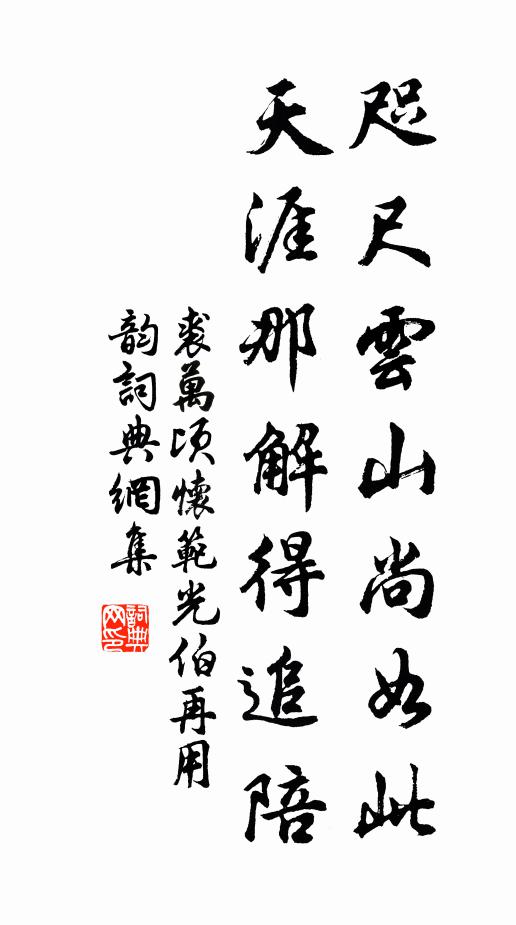 咫尺雲山尚如此
天涯那解得追陪
裘萬頃懷範光伯再用
韵詞典網集
詞典
网印